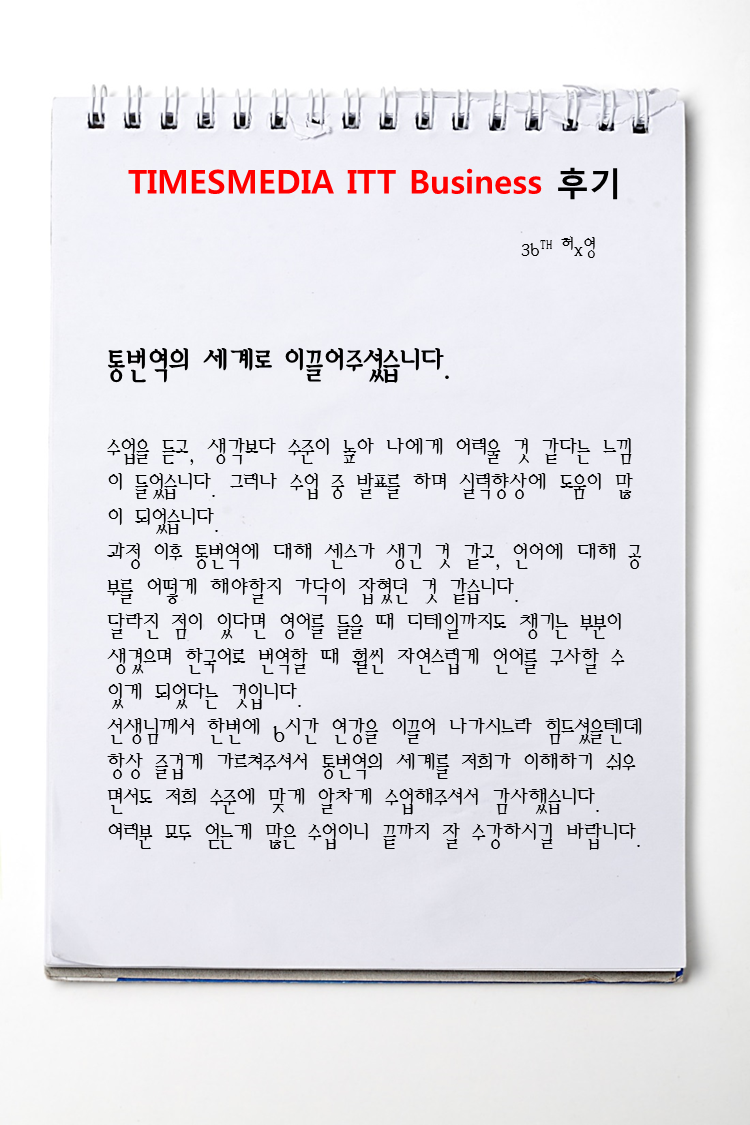 TIMESMEDIA ITT Business 후기
36TH 허x영
통번역의 세계로 이끌어주셨습니다.
수업을 듣고, 생각보다 수준이 높아 나에게 어려울 것 같다는 느낌
이 들었습니다. 그러나 수업 중 발표를 하며 실력향상에 도움이 많
이 되었습니다.
과정 이후 통번역에 대해 센스가 생긴 것 같고, 언어에 대해 공
부를 어떻게 해야할지 가닥이 잡혔던 것 같습니다.
달라진 점이 있다면 영어를 들을 때 디테일까지도 챙기는 부분이
생겼으며 한국어로 번역할 때 훨씬 자연스럽게 언어를 구사할 수
있게 되었다는 것입니다.
선생님께서 한번에 6시간 연강을 이끌어 나가시느라 힘드셨을텐데
항상 즐겁게 가르쳐주셔서 통번역의 세계를 저희가 이해하기 쉬우
면서도 저희 수준에 맞게 알차게 수업해주셔서 감사했습니다.
여러분 모두 얻는게 많은 수업이니 끝까지 잘 수강하시길 바랍니다.